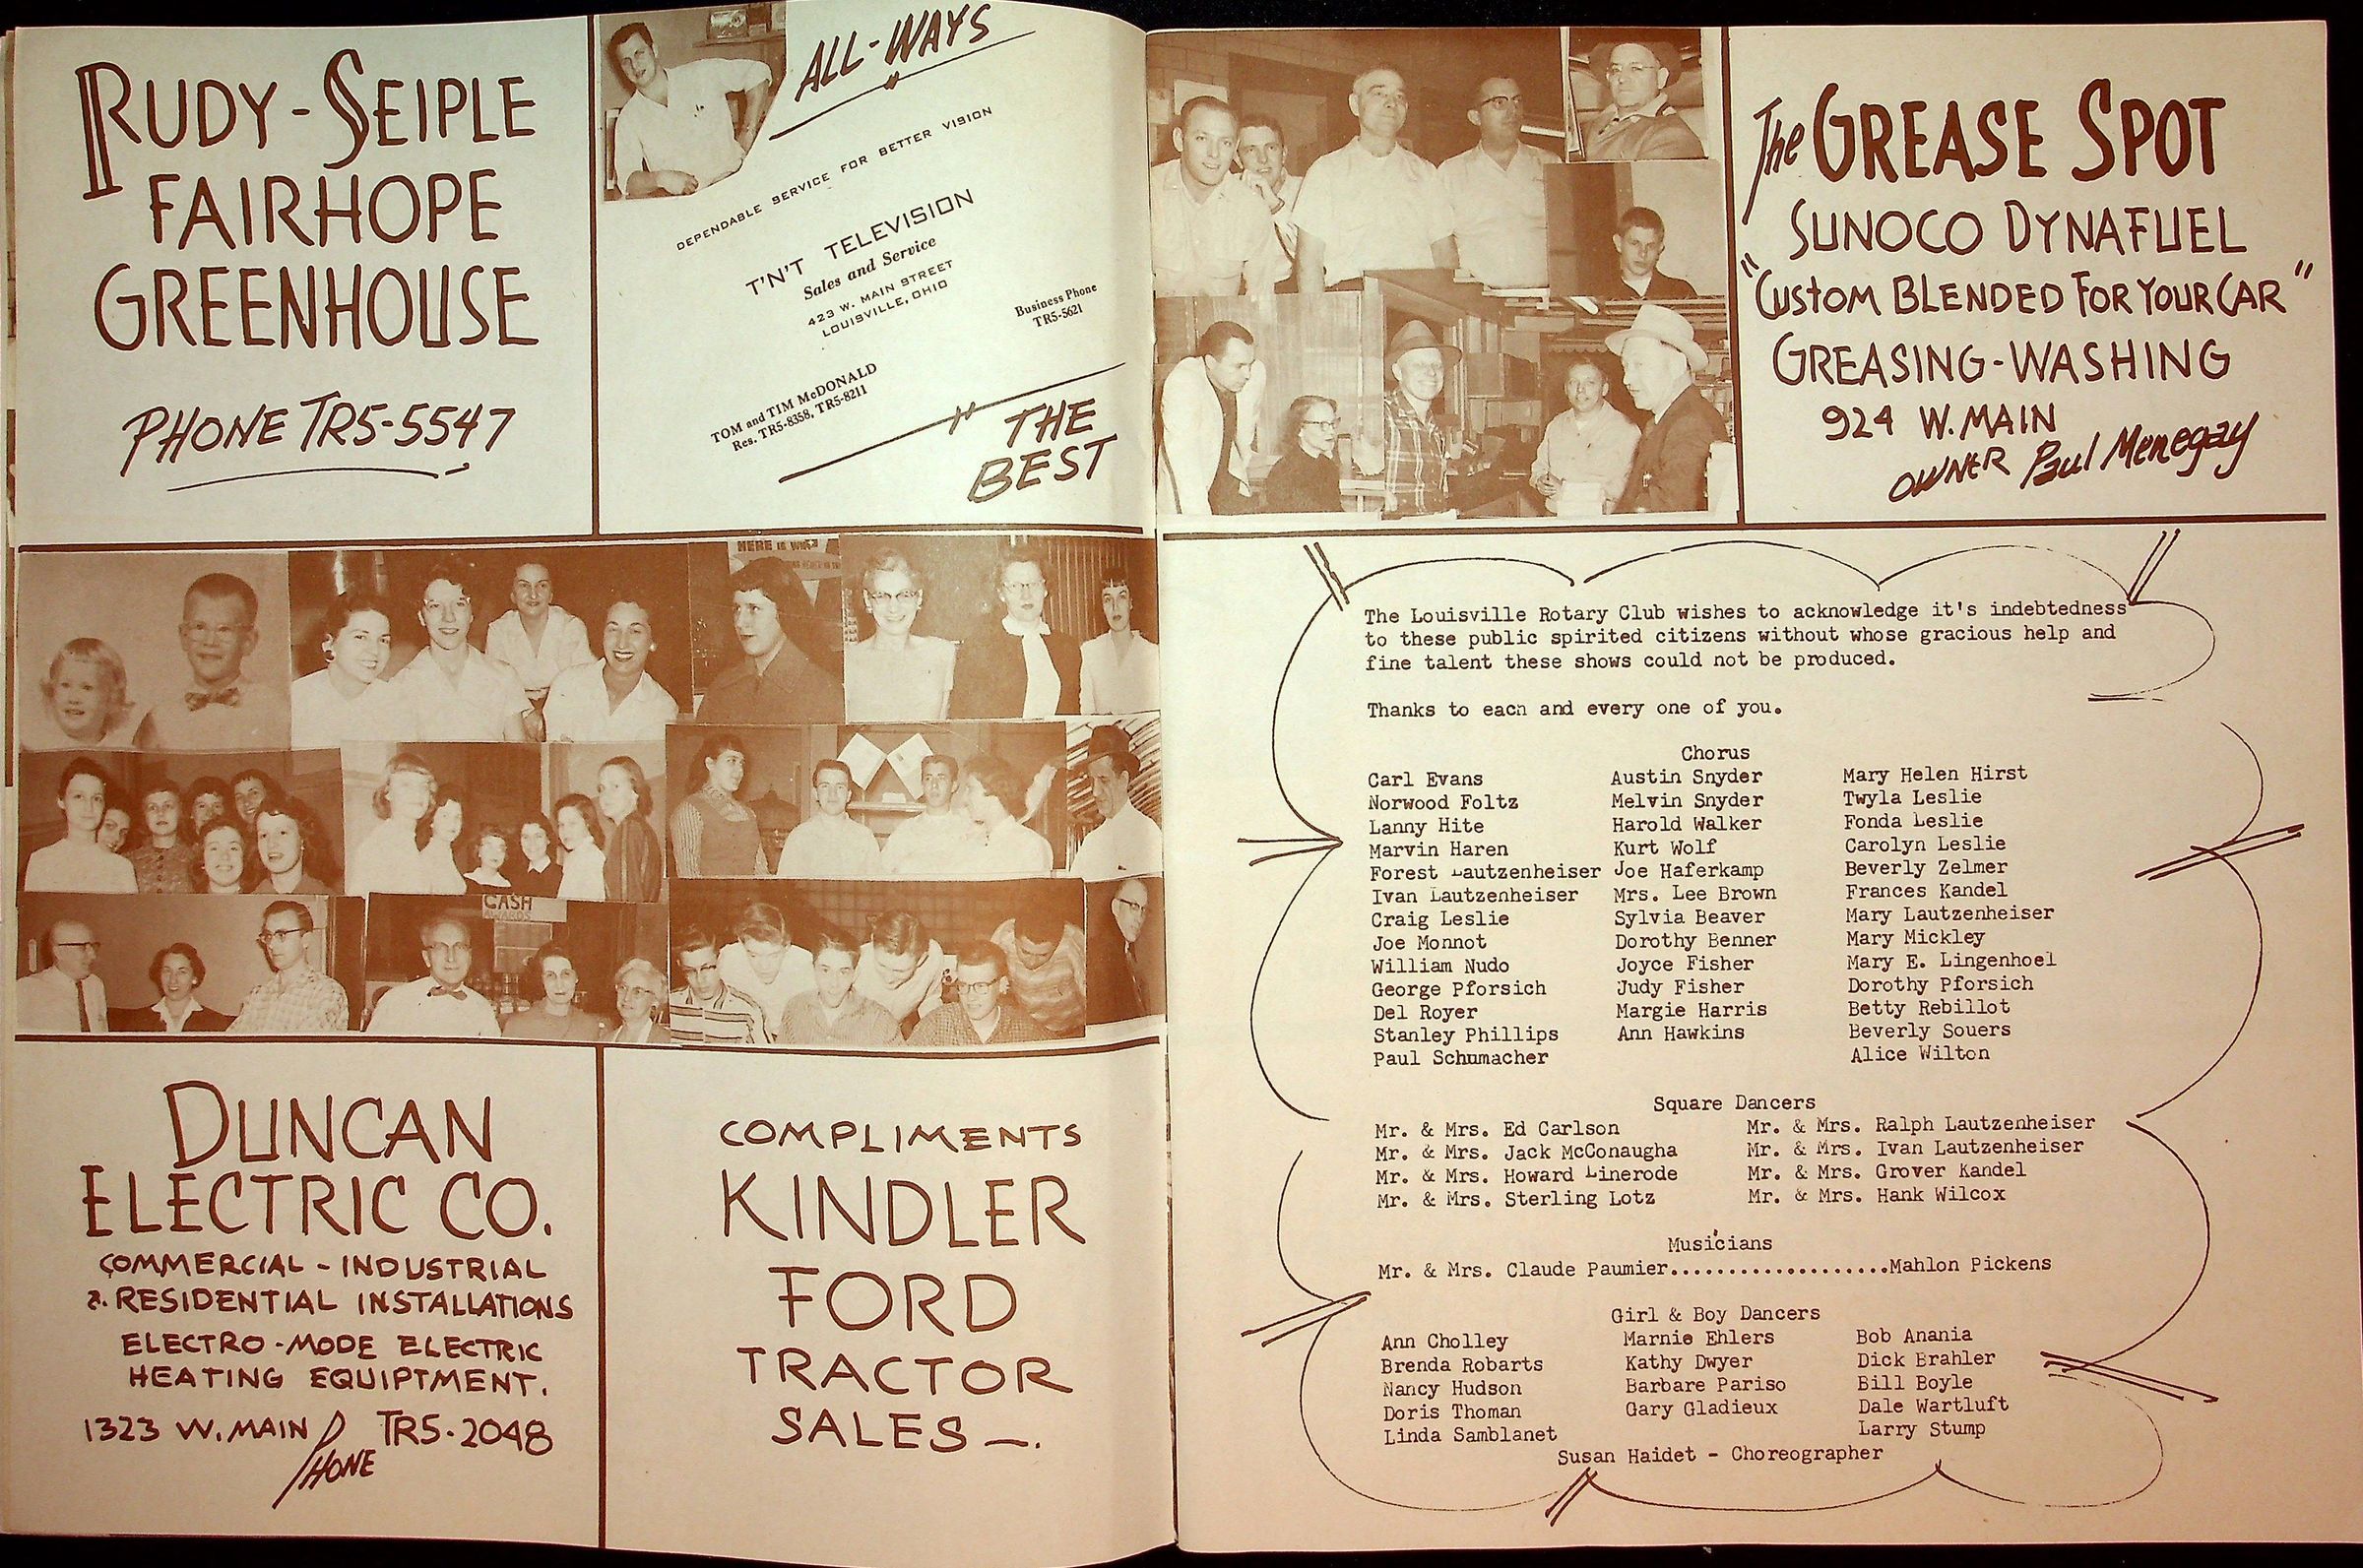 RUDY-SEIPLE
FAIRHOPE
GREENHOUSE
PHONE TR5-5547
ALL-WAYS
DEPENDABLE SERVICE FOR BETTER VISION
T'N'T TELEVISION
Sales and Service
423 W. MAIN STREET
LOUISVILLE, OHIO
Business Phone
TR5-5621
TOM and TIM McDONALD
Res. TR5-8358, TR5-8211
THE
BEST
HERE IS
CASH
AWARDS
DUNCAN
ELECTRIC CO.
COMMERCIAL - INDUSTRIAL
&. RESIDENTIAL INSTALLATIONS
ELECTRO-MODE ELECTRIC
HEATING EQUIPTMENT.
1323 W. MAIN PHONE TR5-2048
COMPLIMENTS
KINDLER
FORD
TRACTOR
SALES —.
The GREASE SPOT
SUNOCO DYNAFUEL
"CUSTOM BLENDED FOR YOUR CAR"
GREASING-WASHING
924 W. MAIN
OWNER Paul Menegay
The Louisville Rotary Club wishes to acknowledge it's indebtedness
to these public spirited citizens without whose gracious help and
fine talent these shows could not be produced.
Thanks to each and every one of you.
Chorus
Carl Evans Austin Snyder Mary Helen Hirst
Norwood Foltz Melvin Snyder Twyla Leslie
Lanny Hite Harold Walker Fonda Leslie
Marvin Haren Kurt Wolf Carolyn Leslie
Forest Lautzenheiser Joe Haferkamp Beverly Zelmer
Ivan Lautzenheiser Mrs. Lee Brown Frances Kandel
Craig Leslie Sylvia Beaver Mary Lautzenheiser
Joe Monnot Dorothy Benner Mary Mickley
William Nudo Joyce Fisher Mary E. Lingenhoel
George Pforsich Judy Fisher Dorothy Pforsich
Del Royer Margie Harris Betty Rebillot
Stanley Phillips Ann Hawkins Beverly Souers
Paul Schumacher Alice Wilton
Square Dancers
Mr. & Mrs. Ed Carlson Mr. & Mrs. Ralph Lautzenheiser
Mr. & Mrs. Jack McConaugha Mr. & Mrs. Ivan Lautzenheiser
Mr. & Mrs. Howard Linerode Mr. & Mrs. Grover Kandel
Mr. & Mrs. Sterling Lotz Mr. & Mrs. Hank Wilcox
Musicians
Mr. & Mrs. Claude Paumier...................Mahlon Pickens
Girl & Boy Dancers
Ann Cholley Marnie Ehlers Bob Anania
Brenda Robarts Kathy Dwyer Dick Brahler
Nancy Hudson Barbare Pariso Bill Boyle
Doris Thoman Gary Gladieux Dale Wartluft
Linda Samblanet Larry Stump
Susan Haidet - Choreographer